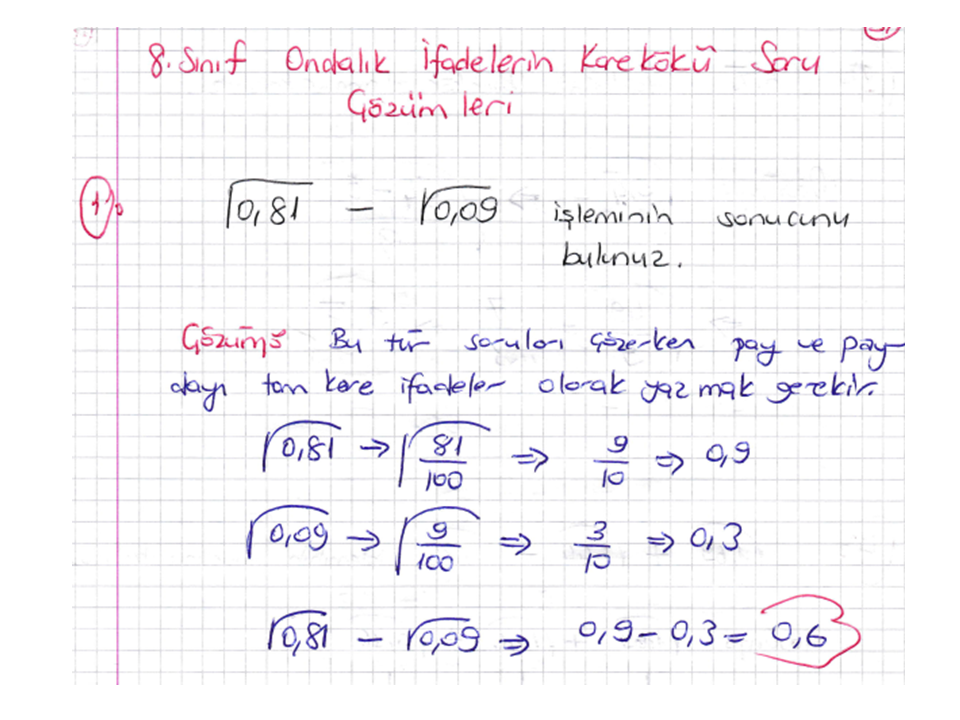 8. Sınıf Ondalık İfadelerin Karekökü Soru
Çözümleri
1) √0,81 − √0,09 işleminin sonucunu
bulunuz.
Çözüm: Bu tür soruları çözerken pay ve pay-
dayı tam kare ifadeler olarak yazmak gerekir.
√0,81 → √81/100 ⇒ 9/10 ⇒ 0,9
√0,09 → √9/100 ⇒ 3/10 ⇒ 0,3
√0,81 − √0,09 ⇒ 0,9 − 0,3 = 0,6